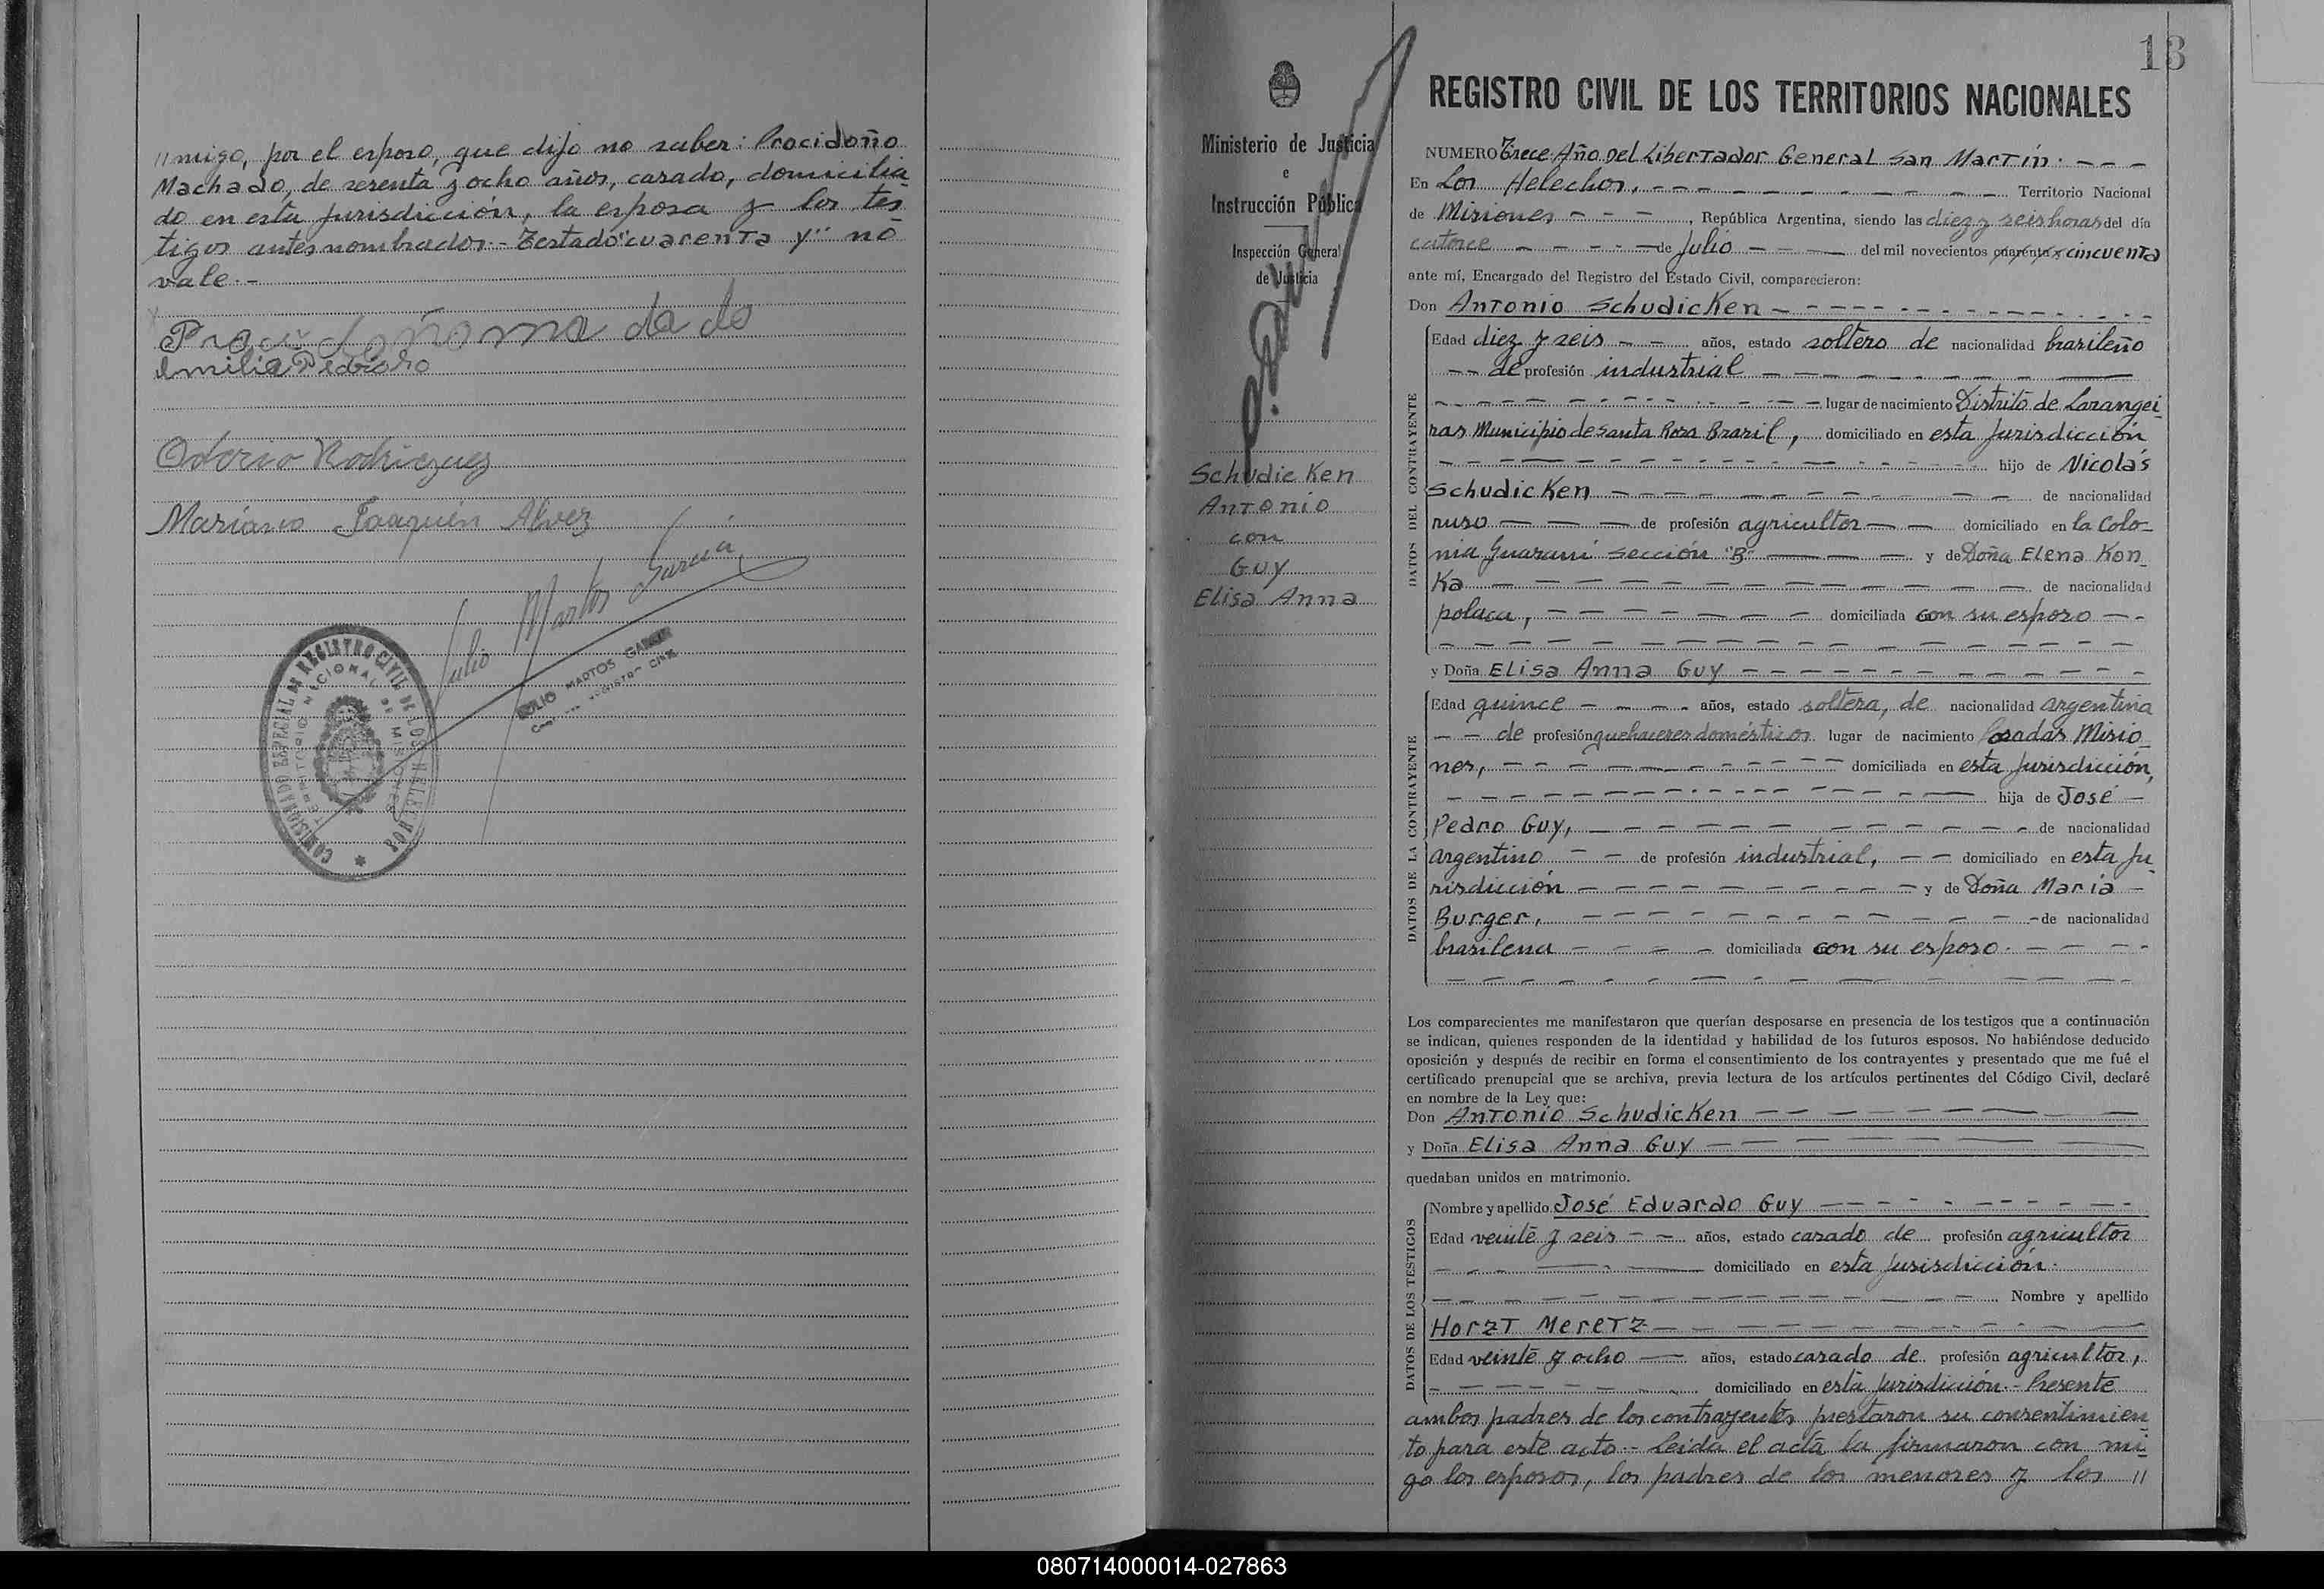 //migo, por el esposo, que dijo no saber: Procidoño
Machado, de sesenta y ocho años, casado, domicilia
do en esta jurisdicción, la esposa y los tes
tigos antes nombrados.- Testado "cuarenta y" no
vale.-
Procidoñomadado
Emilia Pedroso
Odorico Rodriguez
Mariano Joaquin Alvez
Julio Martos Garcia
JULIO MARTOS GARCIA
COMISIONADO ESPECIAL DE REGISTRO CIVIL DE LOS HELECHOS
TERRITORIO NACIONAL DE MISIONES
13
Ministerio de Justicia
e
Instrucción Pública
Inspección General
de Justicia
Schudicken
Antonio
con
Guy
Elisa Anna
REGISTRO CIVIL DE LOS TERRITORIOS NACIONALES
NUMERO Trece Año Del Libertador General San Martín. - - -
En Los Helechos, - - - Territorio Nacional
de Misiones - - - , República Argentina, siendo las diez y seis horas del día
catorce - - - de Julio - - - del mil novecientos cuarenta y cincuenta
ante mí, Encargado del Registro del Estado Civil, comparecieron:
Don Antonio Schudicken - - -
DATOS DEL CONTRAYENTE
Edad diez y seis - - años, estado soltero de nacionalidad brasileño
- - de profesión industrial - - -
- - - lugar de nacimiento Distrito de Larangei
ras Municipio de Santa Rosa Brazil, domiciliado en esta jurisdicción
- - - hijo de Nicolás
Schudicken - - - de nacionalidad
ruso - - - de profesión agricultor - - domiciliado en la Colo-
nia Guaraní Sección "B" - - - y de Doña Elena Kon
Ka - - - de nacionalidad
polaca, - - - domiciliada con su esposo - -
y Doña Elisa Anna Guy - - -
DATOS DE LA CONTRAYENTE
Edad quince - - - años, estado soltera, de nacionalidad argentina
- - de profesión quehaceres domésticos lugar de nacimiento Posadas Misio
nes, - - - domiciliada en esta jurisdicción,
- - - hija de José -
Pedro Guy, - - - de nacionalidad
argentino - - de profesión industrial, - - domiciliado en esta ju
risdicción - - - y de Doña María -
Burger, - - - de nacionalidad
brasilena - - - domiciliada con su esposo. - - -
Los comparecientes me manifestaron que querían desposarse en presencia de los testigos que a continuación
se indican, quienes responden de la identidad y habilidad de los futuros esposos. No habiéndose deducido
oposición y después de recibir en forma el consentimiento de los contrayentes y presentado que me fué el
certificado prenupcial que se archiva, previa lectura de los artículos pertinentes del Código Civil, declaré
en nombre de la Ley que:
Don Antonio Schudicken - - -
y Doña Elisa Anna Guy - - -
quedaban unidos en matrimonio.
DATOS DE LOS TESTIGOS
Nombre y apellido José Eduardo Guy - - -
Edad veinte y seis - - años, estado casado de profesión agricultor
- - - domiciliado en esta jurisdicción.
- - - Nombre y apellido
Horzt Meretz - - -
Edad veinte y ocho - años, estado casado de profesión agricultor,
- - - domiciliado en esta jurisdicción.- Presente
ambos padres de los contrayentes prestaron su consentimien
to para este acto.- Leída el acta la firmaron con mi
go los esposos, los padres de los menores y los //
080714000014-027863